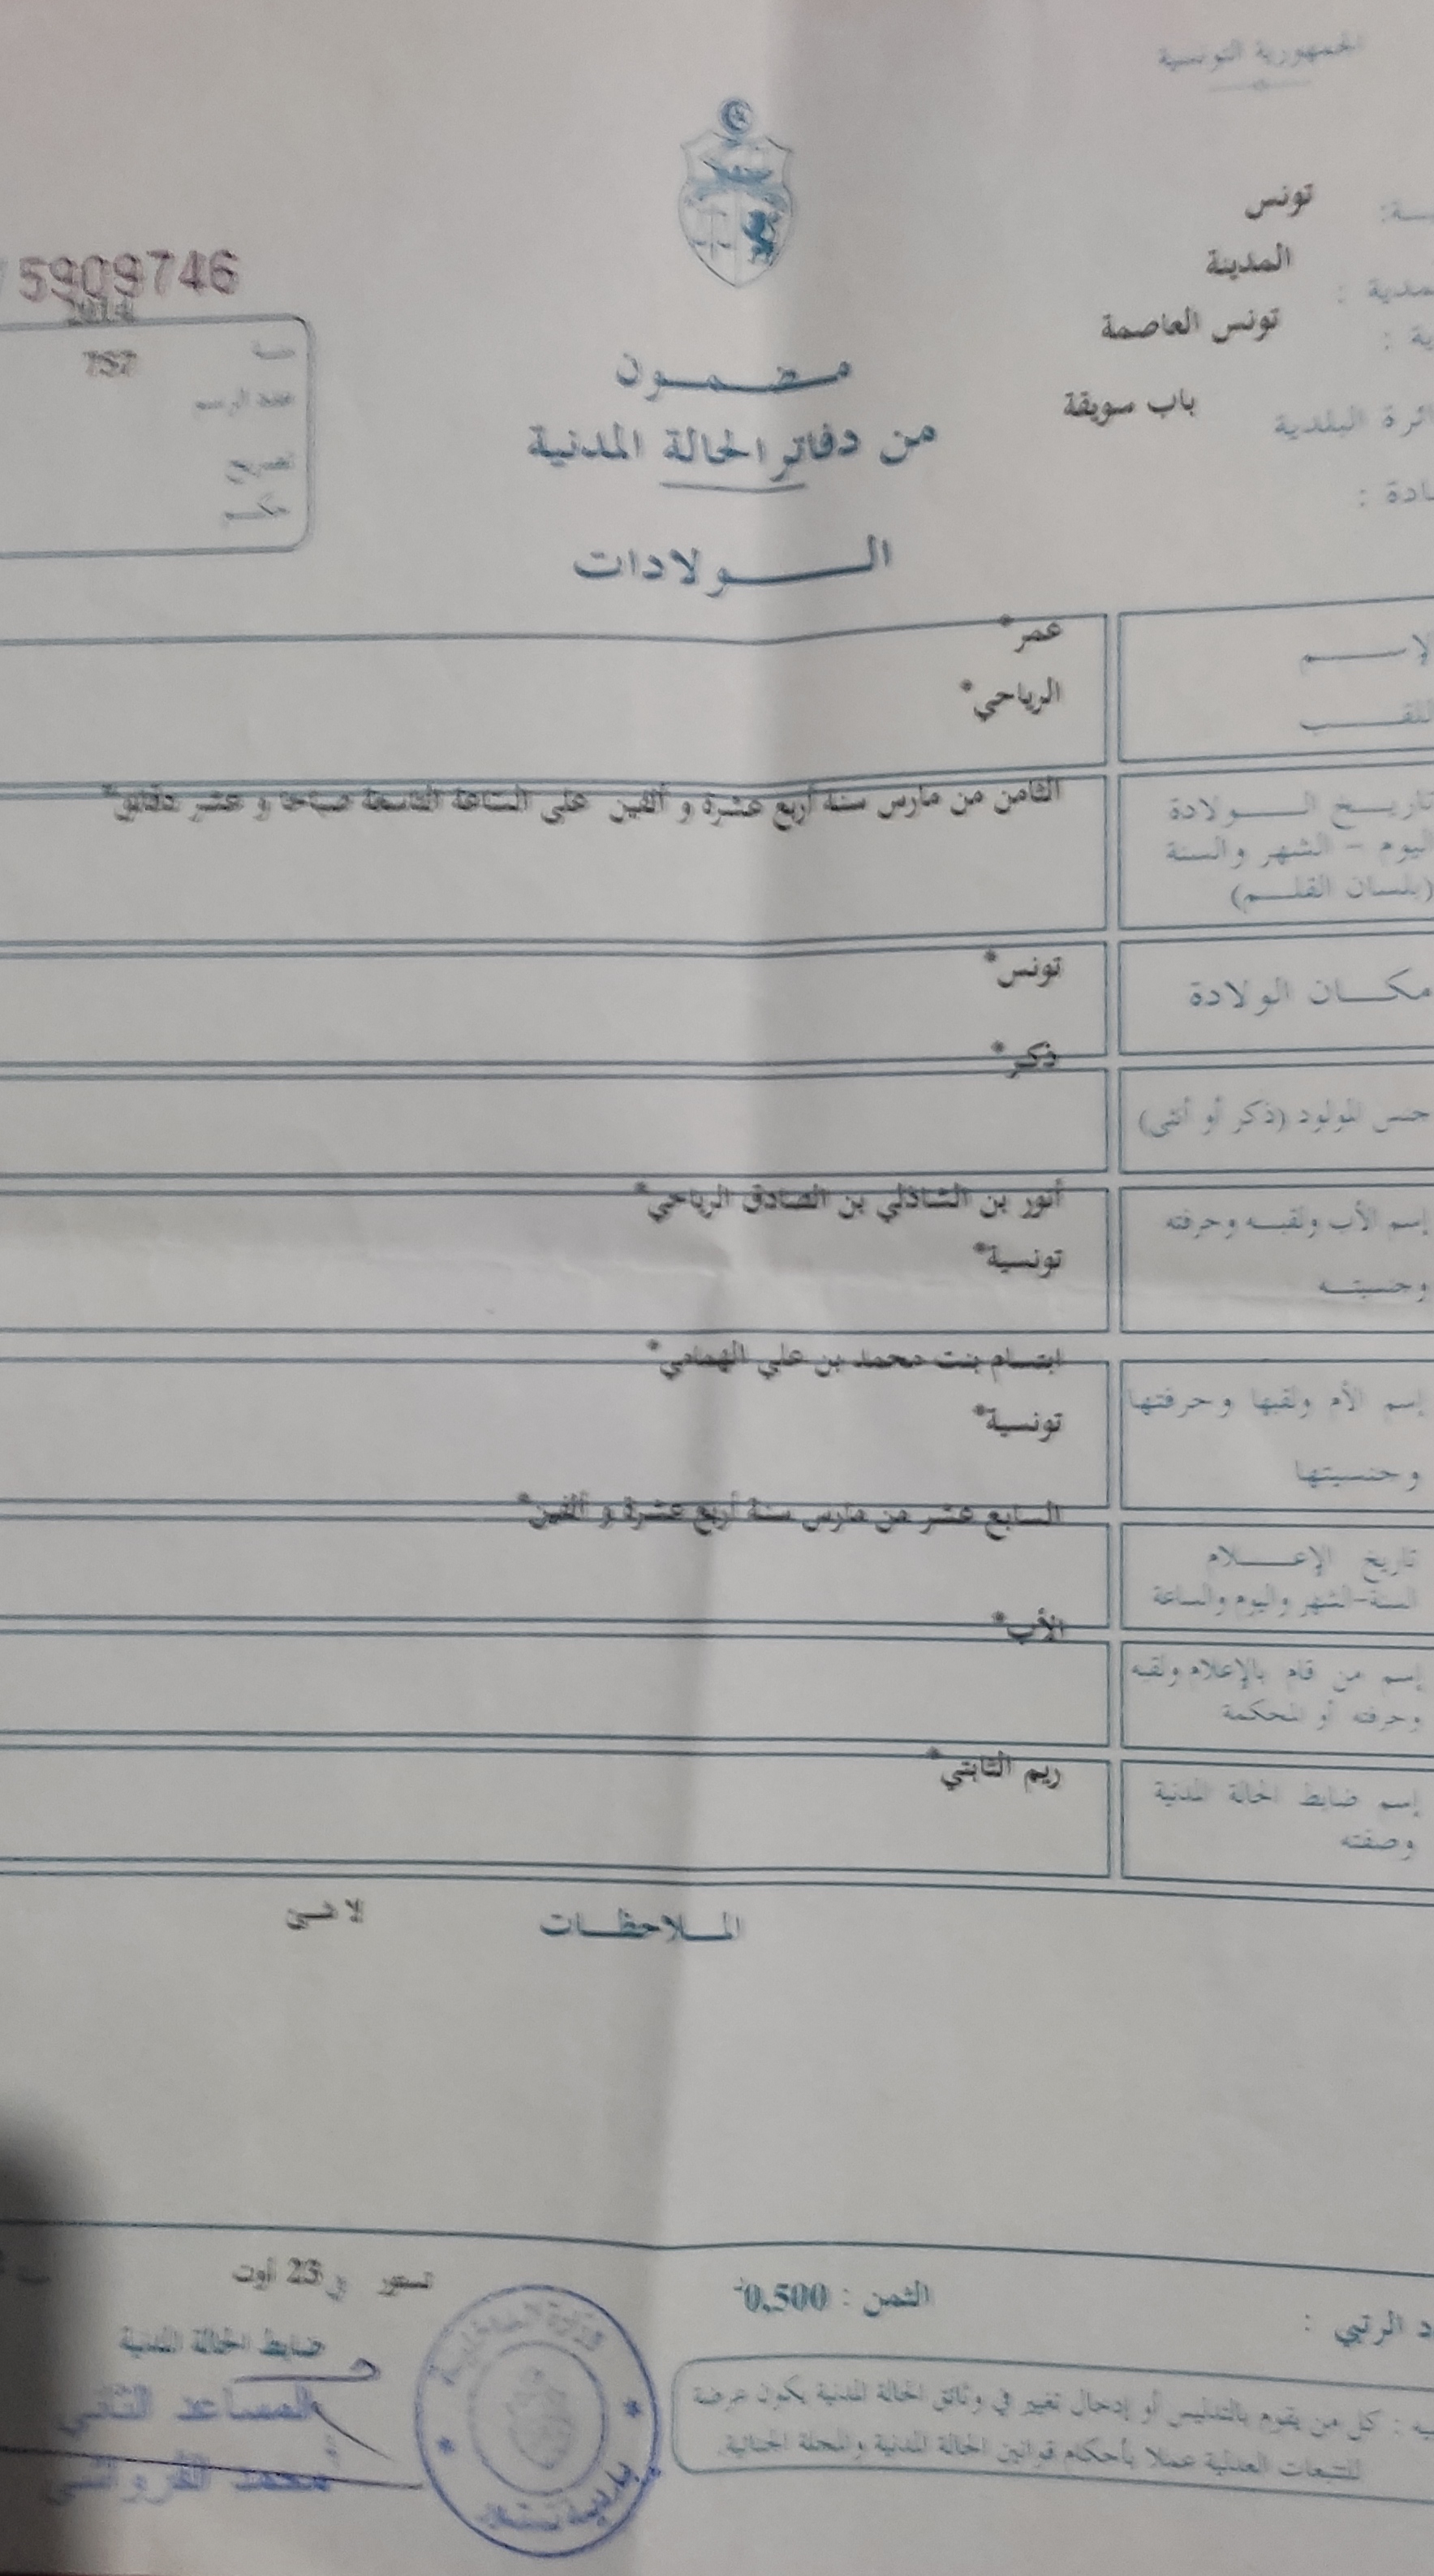 الجمهورية التونسية
تونس
المدينة
تونس العاصمة
البلدية باب سويقة
5909746
2014
سنة 757
عدد الرسم
تصريح
حكم
مضمون
من دفاتر الحالة المدنية
الولادات
الإسم عمر*
اللقب الرياحي*
تاريخ الولادة الثامن من مارس سنة أربع عشرة و ألفين على الساعة التاسعة صباحا و عشر دقائق*
اليوم - الشهر والسنة
(بلسان القلم)
مكان الولادة تونس*
ذكر*
جنس المولود (ذكر أو أنثى)
إسم الأب ولقبه وحرفته أنور بن الشاذلي بن الصادق الرياحي*
وجنسيته تونسية*
إسم الأم ولقبها وحرفتها ابتسام بنت محمد بن علي الهمامي*
وجنسيتها تونسية*
السابع عشر من مارس سنة أربع عشرة و ألفين*
تاريخ الإعلام
السنة-الشهر واليوم والساعة
الأب*
إسم من قام بالإعلام ولقبه
وحرفته أو المحكمة
إسم ضابط الحالة المدنية ريم الثابتي*
وصفته
الملاحظات لا شيء
تستور في 23 أوت
الثمن : 0,500
الرتبي :
ضابط الحالة المدنية
المساعد الثاني
محمد
وزارة الداخلية
بلدية تستور
كل من يقوم بالتدليس أو إدخال تغيير في وثائق الحالة المدنية يكون عرضة
للتتبعات العدلية عملا بأحكام قوانين الحالة المدنية والمجلة الجنائية.